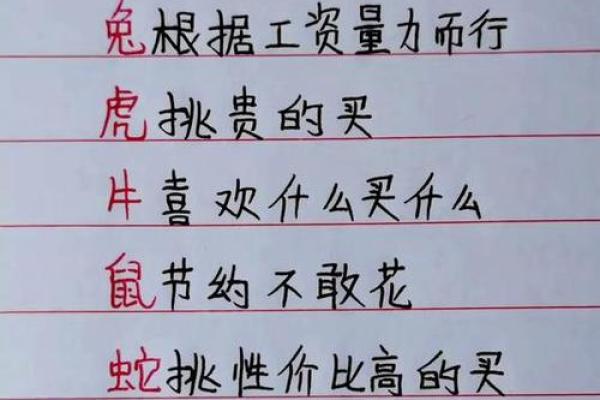 兔根据工资量力而行
虎挑贵的买
牛喜欢什么买什么
鼠节约不敢花
蛇挑性价比高的买